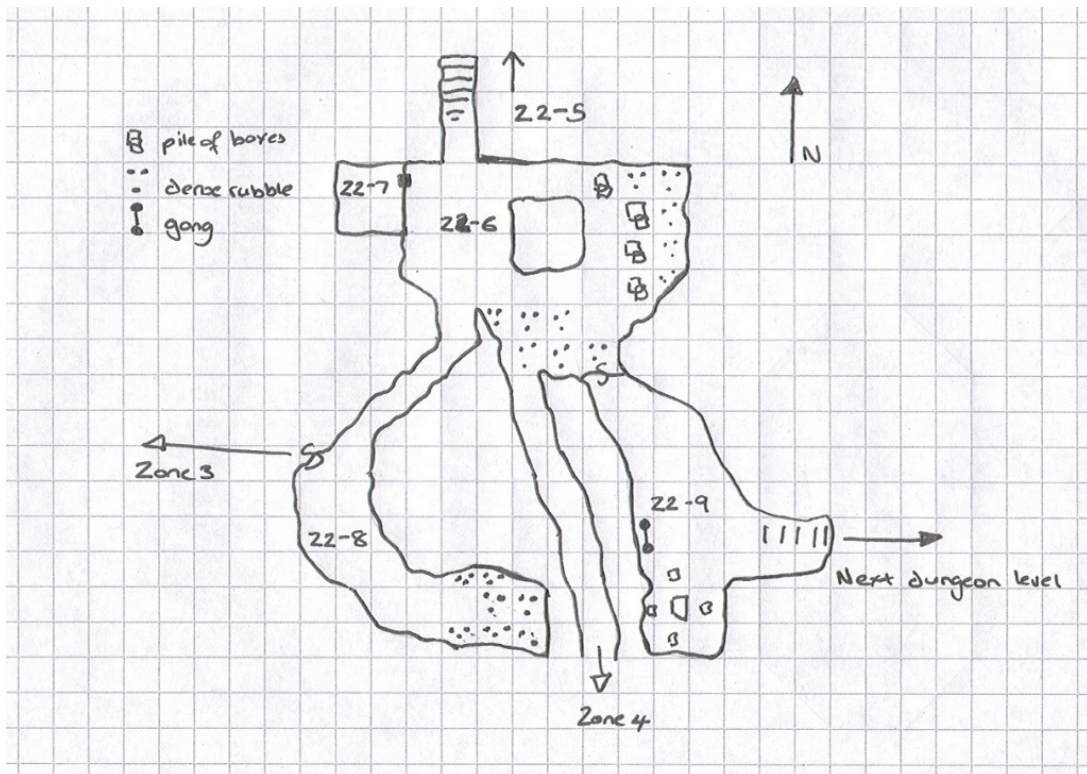 22-5
N
pile of boxes
dense rubble
gong
22-7
22-6
S
S
Zone 3
22-8
22-9
Next dungeon level
Zone 4